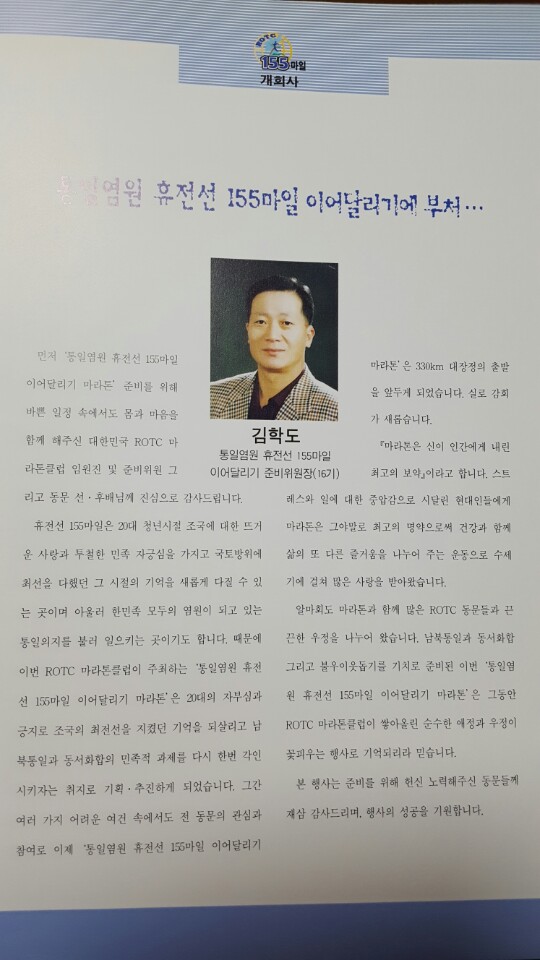 ROTC
155마일
개회사
통일염원 휴전선 155마일 이어달리기에 부쳐…
김학도
통일염원 휴전선 155마일
이어달리기 준비위원장(16기)
먼저 '통일염원 휴전선 155마일
이어달리기 마라톤' 준비를 위해
바쁜 일정 속에서도 몸과 마음을
함께 해주신 대한민국 ROTC 마
라톤클럽 임원진 및 준비위원 그
리고 동문 선·후배님께 진심으로 감사드립니다.
휴전선 155마일은 20대 청년시절 조국에 대한 뜨거
운 사랑과 투철한 민족 자긍심을 가지고 국토방위에
최선을 다했던 그 시절의 기억을 새롭게 다질 수 있
는 곳이며 아울러 한민족 모두의 염원이 되고 있는
통일의지를 불러 일으키는 곳이기도 합니다. 때문에
이번 ROTC 마라톤클럽이 주최하는 '통일염원 휴전
선 155마일 이어달리기 마라톤'은 20대의 자부심과
긍지로 조국의 최전선을 지켰던 기억을 되살리고 남
북통일과 동서화합의 민족적 과제를 다시 한번 각인
시키자는 취지로 기획·추진하게 되었습니다. 그간
여러 가지 어려운 여건 속에서도 전 동문의 관심과
참여로 이제 '통일염원 휴전선 155마일 이어달리기
마라톤'은 330km 대장정의 출발
을 앞두게 되었습니다. 실로 감회
가 새롭습니다.
『마라톤은 신이 인간에게 내린
최고의 보약』이라고 합니다. 스트
레스와 일에 대한 중압감으로 시달린 현대인들에게
마라톤은 그야말로 최고의 명약으로써 건강과 함께
삶의 또 다른 즐거움을 나누어 주는 운동으로 수세
기에 걸쳐 많은 사랑을 받아왔습니다.
알마회도 마라톤과 함께 많은 ROTC 동문들과 끈
끈한 우정을 나누어 왔습니다. 남북통일과 동서화합
그리고 불우이웃돕기를 기치로 준비된 이번 '통일염
원 휴전선 155마일 이어달리기 마라톤'은 그동안
ROTC 마라톤클럽이 쌓아올린 순수한 애정과 우정이
꽃피우는 행사로 기억되리라 믿습니다.
본 행사는 준비를 위해 헌신 노력해주신 동문들께
재삼 감사드리며, 행사의 성공을 기원합니다.